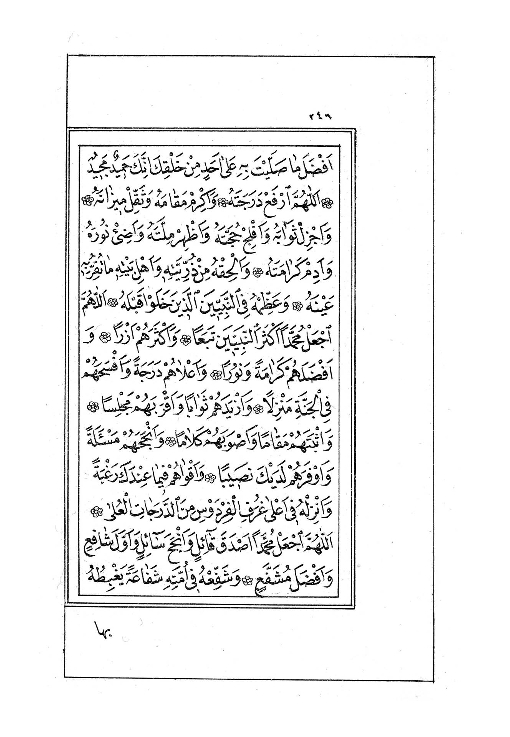 ٢٤٩
اَفْضَلَ مَا صَلَّيْتَ بِهِ عَلٰى اَحَدٍ مِنْ خَلْقِكَ اِنَّكَ حَمِيدٌ مَجِيدٌ
۞ اَللّٰهُمَّ ارْفَعْ دَرَجَتَهُ ۞ وَاَكْرِمْ مَقَامَهُ وَثَقِّلْ مِيزَانَهُ
وَاَجْزِلْ ثَوَابَهُ وَاَفْلِجْ حُجَّتَهُ وَاَظْهِرْ مِلَّتَهُ وَاَضِئْ نُورَهُ
وَاَدِمْ كَرَامَتَهُ ۞ وَاَلْحِقْهُ مِنْ ذُرِّيَّتِهِ وَاَهْلِ بَيْتِهِ مَا تَقَرُّ بِهِ
عَيْنُهُ ۞ وَعَظِّمْهُ فِى النَّبِيّينَ الَّذِينَ خَلَوْا قَبْلَهُ ۞ اَللّٰهُمَّ
اجْعَلْ مُحَمَّدًا اَكْثَرَ النَّبِيّينَ تَبَعًا ۞ وَاَكْثَرَهُمْ اُزَرًا ۞ وَ
اَفْضَلَهُمْ كَرَامَةً وَنُورًا ۞ وَاَعْلَاهُمْ دَرَجَةً وَاَفْسَحَهُمْ
فِى الْجَنَّةِ مَنْزِلًا ۞ وَاَزْيَدَهُمْ ثَوَابًا وَاَقْرَبَهُمْ مَجْلِسًا ۞
وَاَثْبَتَهُمْ مَقَامًا وَاَصْوَبَهُمْ كَلَامًا ۞ وَاَنْجَحَهُمْ مَسْئَلَةً
وَاَوْفَرَهُمْ لَدَيْكَ نَصِيبًا ۞ وَاَقْوَاهُمْ فِيمَا عِنْدَكَ رَغْبَةً
وَاَنْزِلْهُ فِى اَعْلٰى غُرَفِ الْفِرْدَوْسِ مِنَ الدَّرَجَاتِ الْعُلٰى ۞
اَللّٰهُمَّ اجْعَلْ مُحَمَّدًا اَصْدَقَ قَائِلٍ وَاَنْجَحَ سَائِلٍ وَاَوَّلَ شَافِعٍ
وَاَفْضَلَ مُشَفَّعٍ ۞ وَشَفِّعْهُ فِى اُمَّتِهِ شَفَاعَةً يَغْبِطُهُ
بها